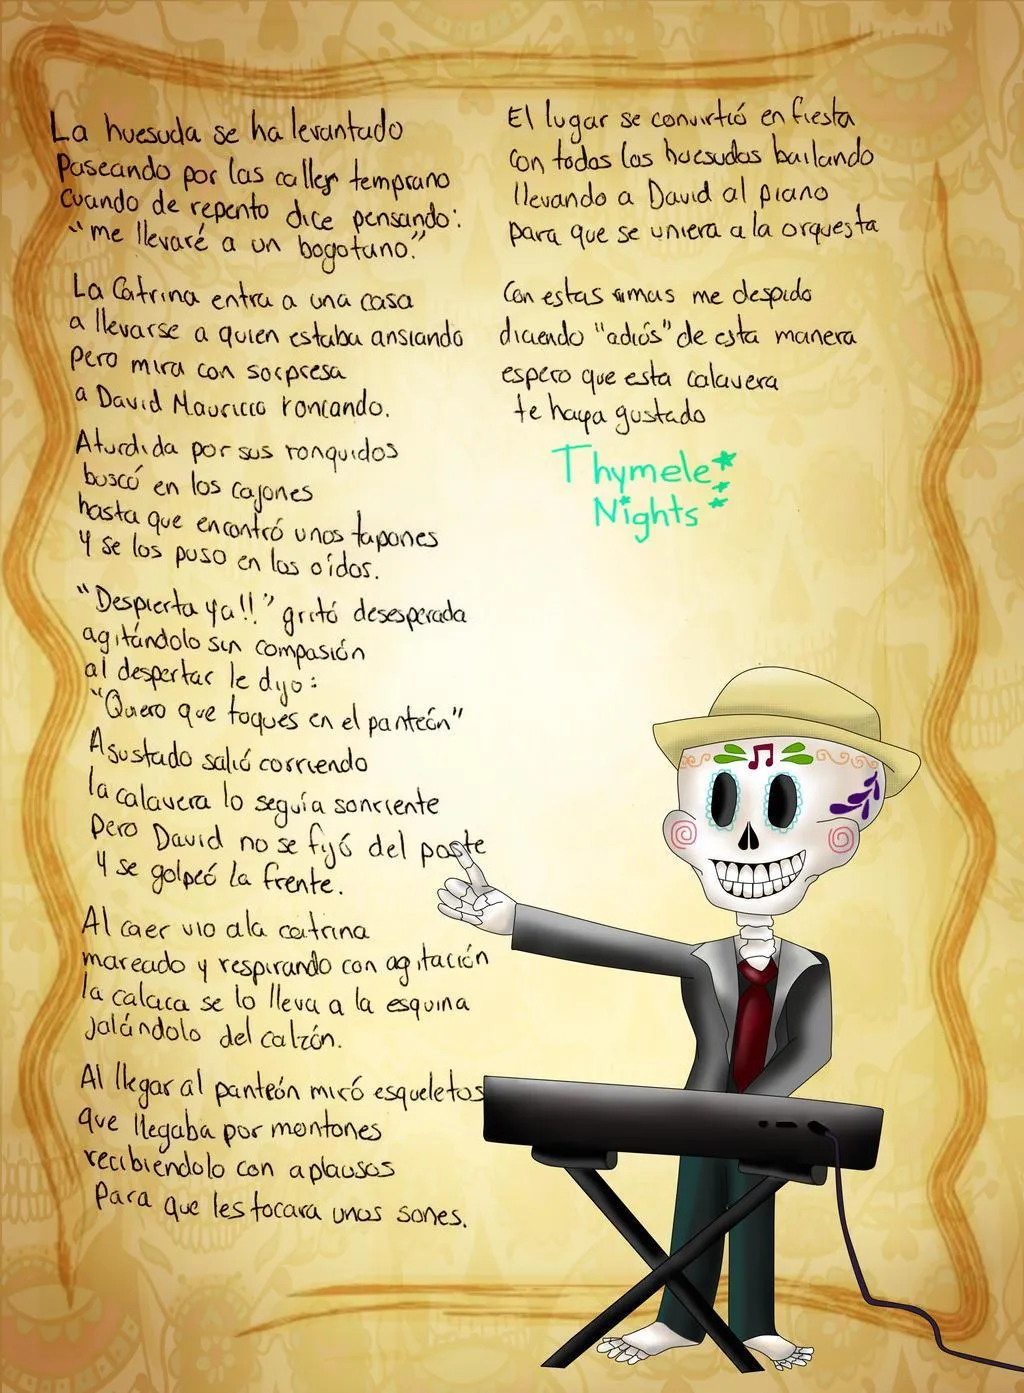 La huesuda se ha levantado
Paseando por las calles temprano
Cuando de repento dice pensando:
"me llevaré a un bogotano."
La Catrina entra a una casa
a llevarse a quien estaba ansiando
Pero mira con sorpresa
a David Mauricio roncando.
Aturdida por sus ronquidos
buscó en los cajones
hasta que encontró unos tapones
Y se los puso en los oídos.
"Despierta ya!!" gritó desesperada
agitándolo sin compasión
al despertar le dijo:
"Quiero que toques en el panteón"
Asustado salió corriendo
la calavera lo seguía sonriente
Pero David no se fijó del poste
Y se golpeó la frente.
Al caer vio a la catrina
mareado y respirando con agitación
la calaca se lo lleva a la esquina
Jalándolo del calzón.
Al llegar al panteón miró esqueletos
que llegaba por montones
recibiéndolo con aplausos
Para que les tocara unos sones.
El lugar se convirtió en fiesta
con todos los huesudos bailando
llevando a David al piano
para que se uniera a la orquesta
Con estas rimas me despido
diciendo "adiós" de esta manera
espero que esta calavera
te haya gustado
Thymele
Nights